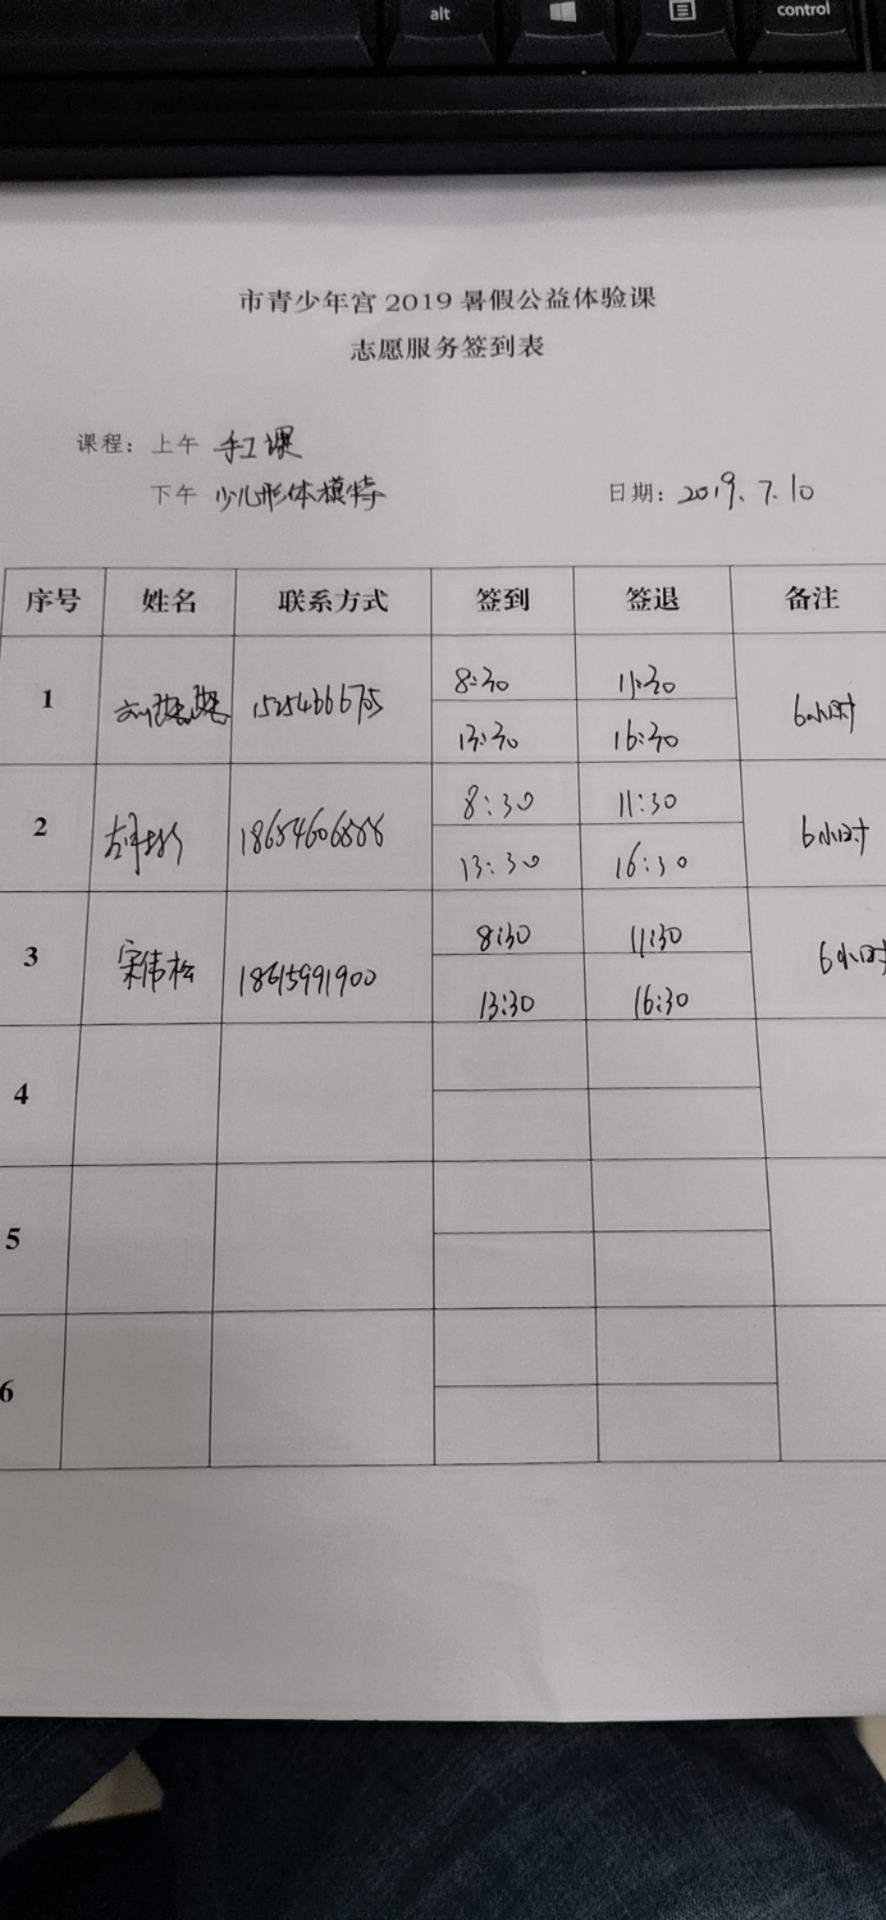 alt
control
市青少年宫 2019 暑假公益体验课
志愿服务签到表
课程：上午 手工课
下午 少儿形体模特 日期：2019.7.10
序号 姓名 联系方式 签到 签退 备注
8:30 11:30
1 6小时
13:30 16:30
8:30 11:30
2 6小时
13:30 16:30
8:30 11:30
3 宋伟松 18615991900 6小时
13:30 16:30
4
5
6